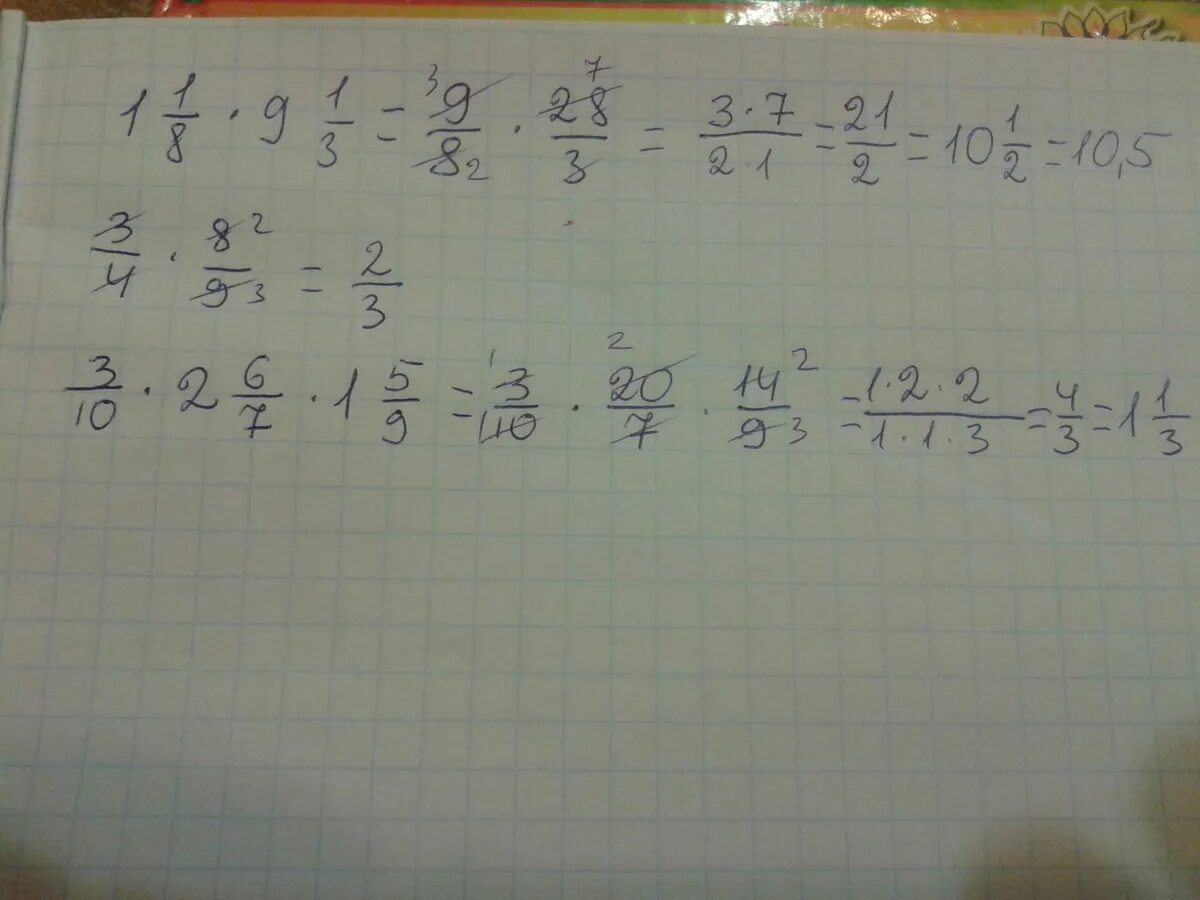 1 1/8 · 9 1/3 = ³9/8₂ · 28⁷/3 = 3·7/2·1 = 21/2 = 10 1/2 = 10,5
3/4 · 8²/9₃ = 2/3
3/10 · 2 6/7 · 1 5/9 = ¹3/₁10 · ²20/7 · 14²/9₃ = 1·2·2/1·1·3 = 4/3 = 1 1/3